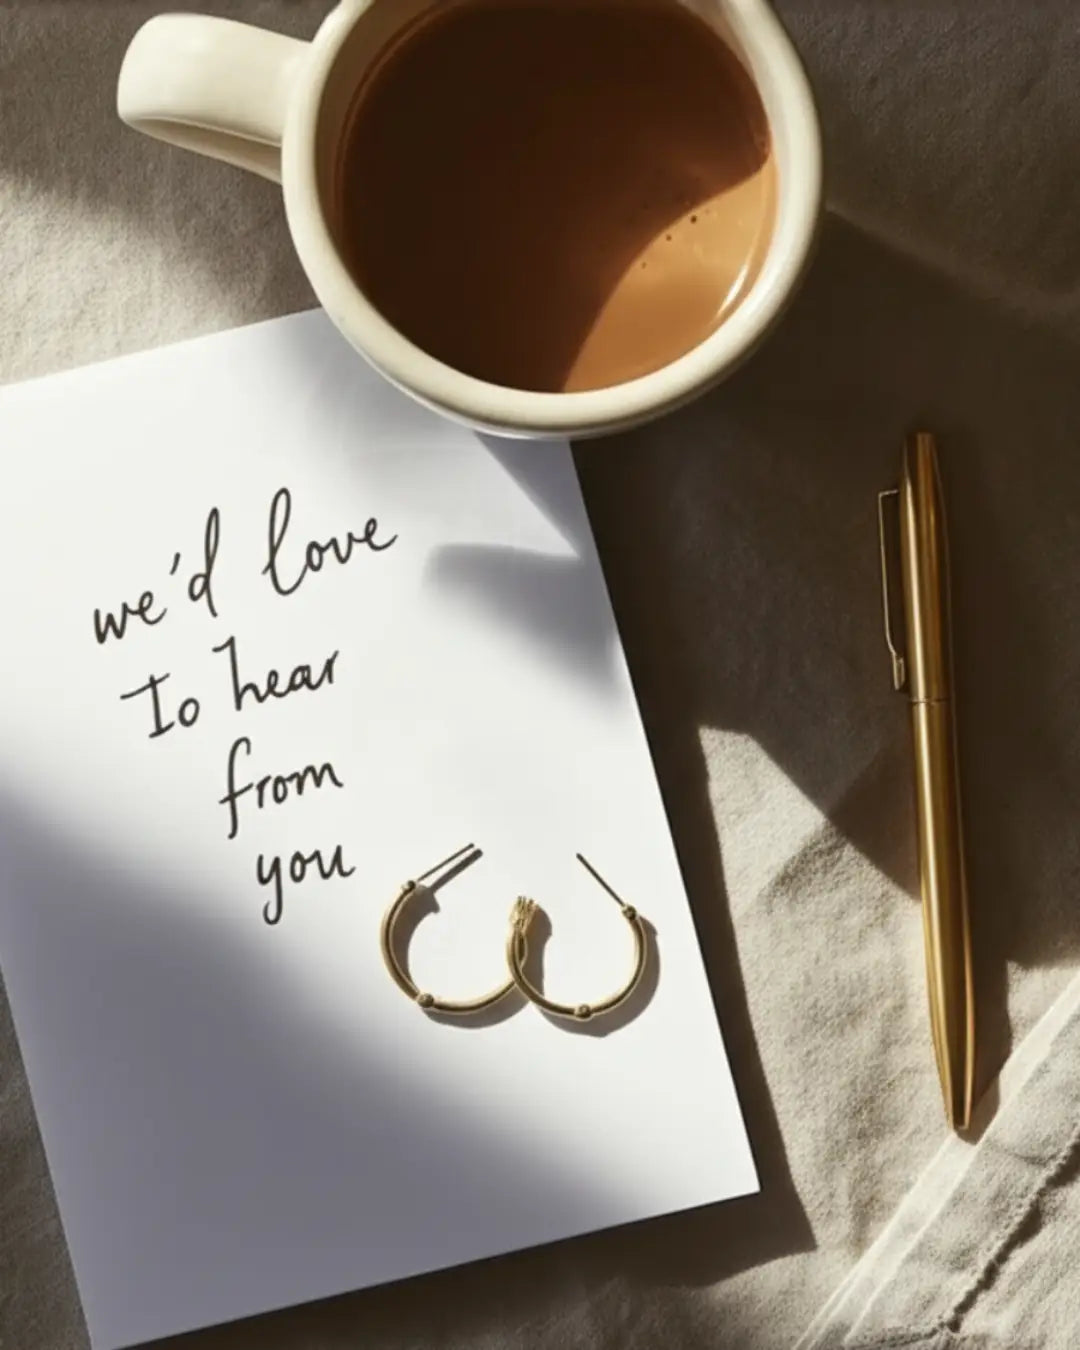 we'd love
To hear
from
you